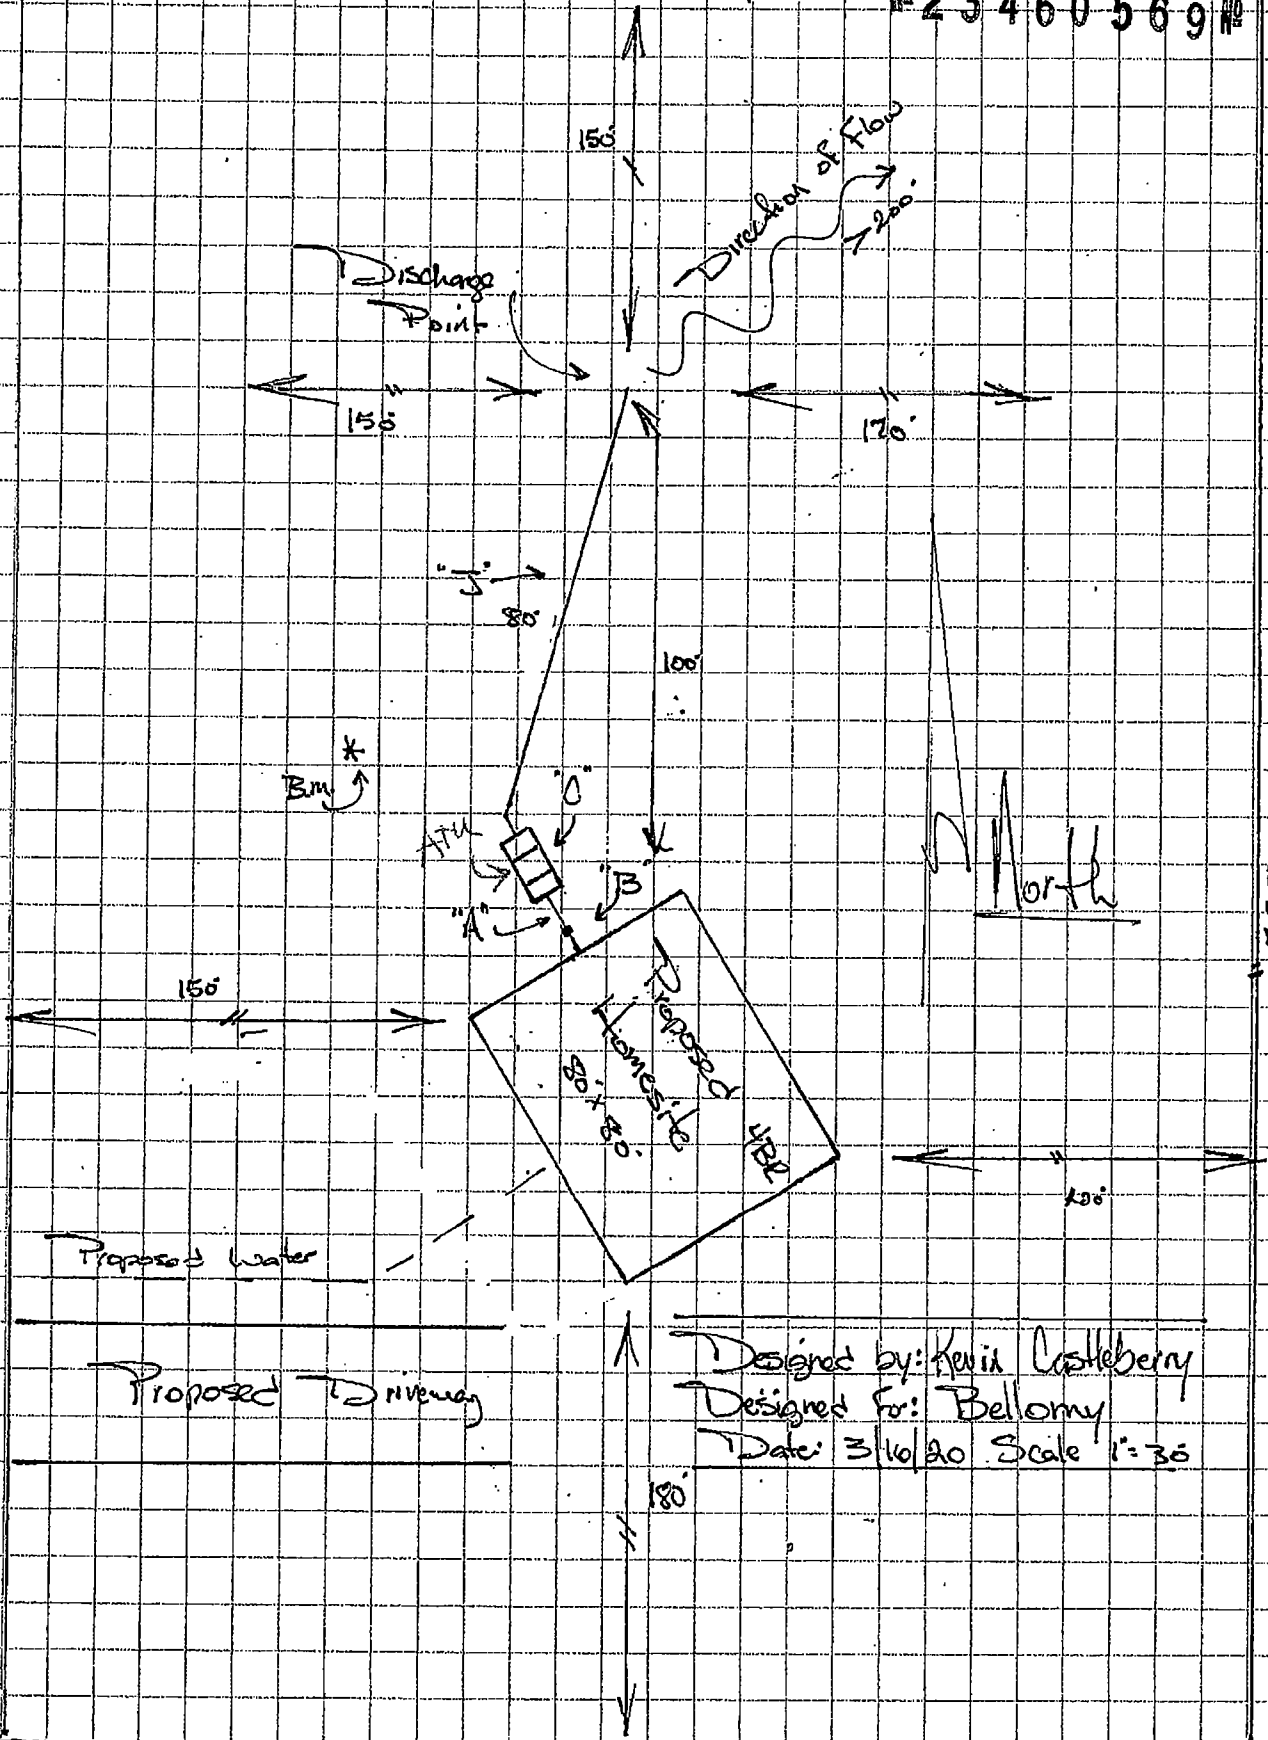 23460569
150'
Direction of Flow
>200'
Discharge
Point
150'
170'
"J"
80'
100'
B.M.
"C"
ATU
"B"
"A"
150'
Proposed
Homesite
80' x 80'
4BR
North
Proposed Water
Proposed Driveway
180'
Designed by: Kevin Castleberry
Designed For: Bellomy
Date: 3/16/20 Scale 1"=30'